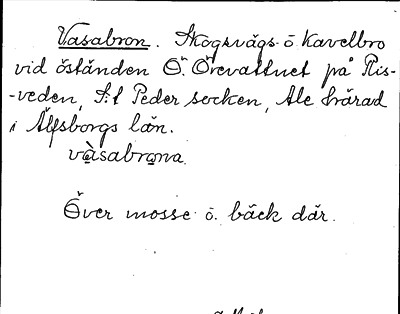 Vasabron. Skogsvägs- o. kavelbro
vid öständen Ö. Örevattnet på Ris-
-veden, S:t Peder socken, Ale härad
i Älfsborgs län.
vàsabrǫna.
Över mosse o. bäck där.